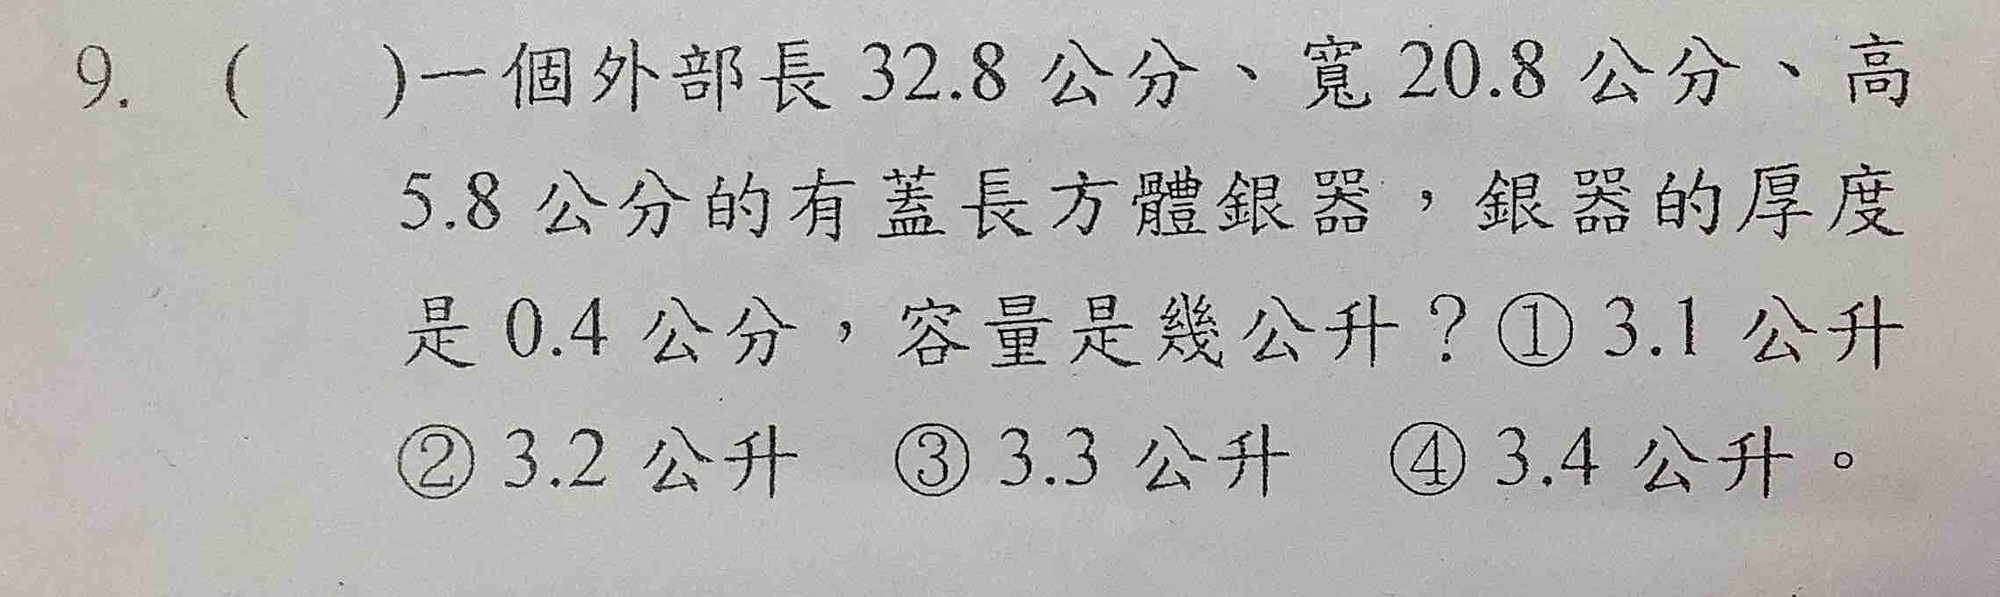 9. (　　)一個外部長 32.8 公分、寬 20.8 公分、高
5.8 公分的有蓋長方體銀器，銀器的厚度
是 0.4 公分，容量是幾公升？① 3.1 公升
② 3.2 公升　③ 3.3 公升　④ 3.4 公升。